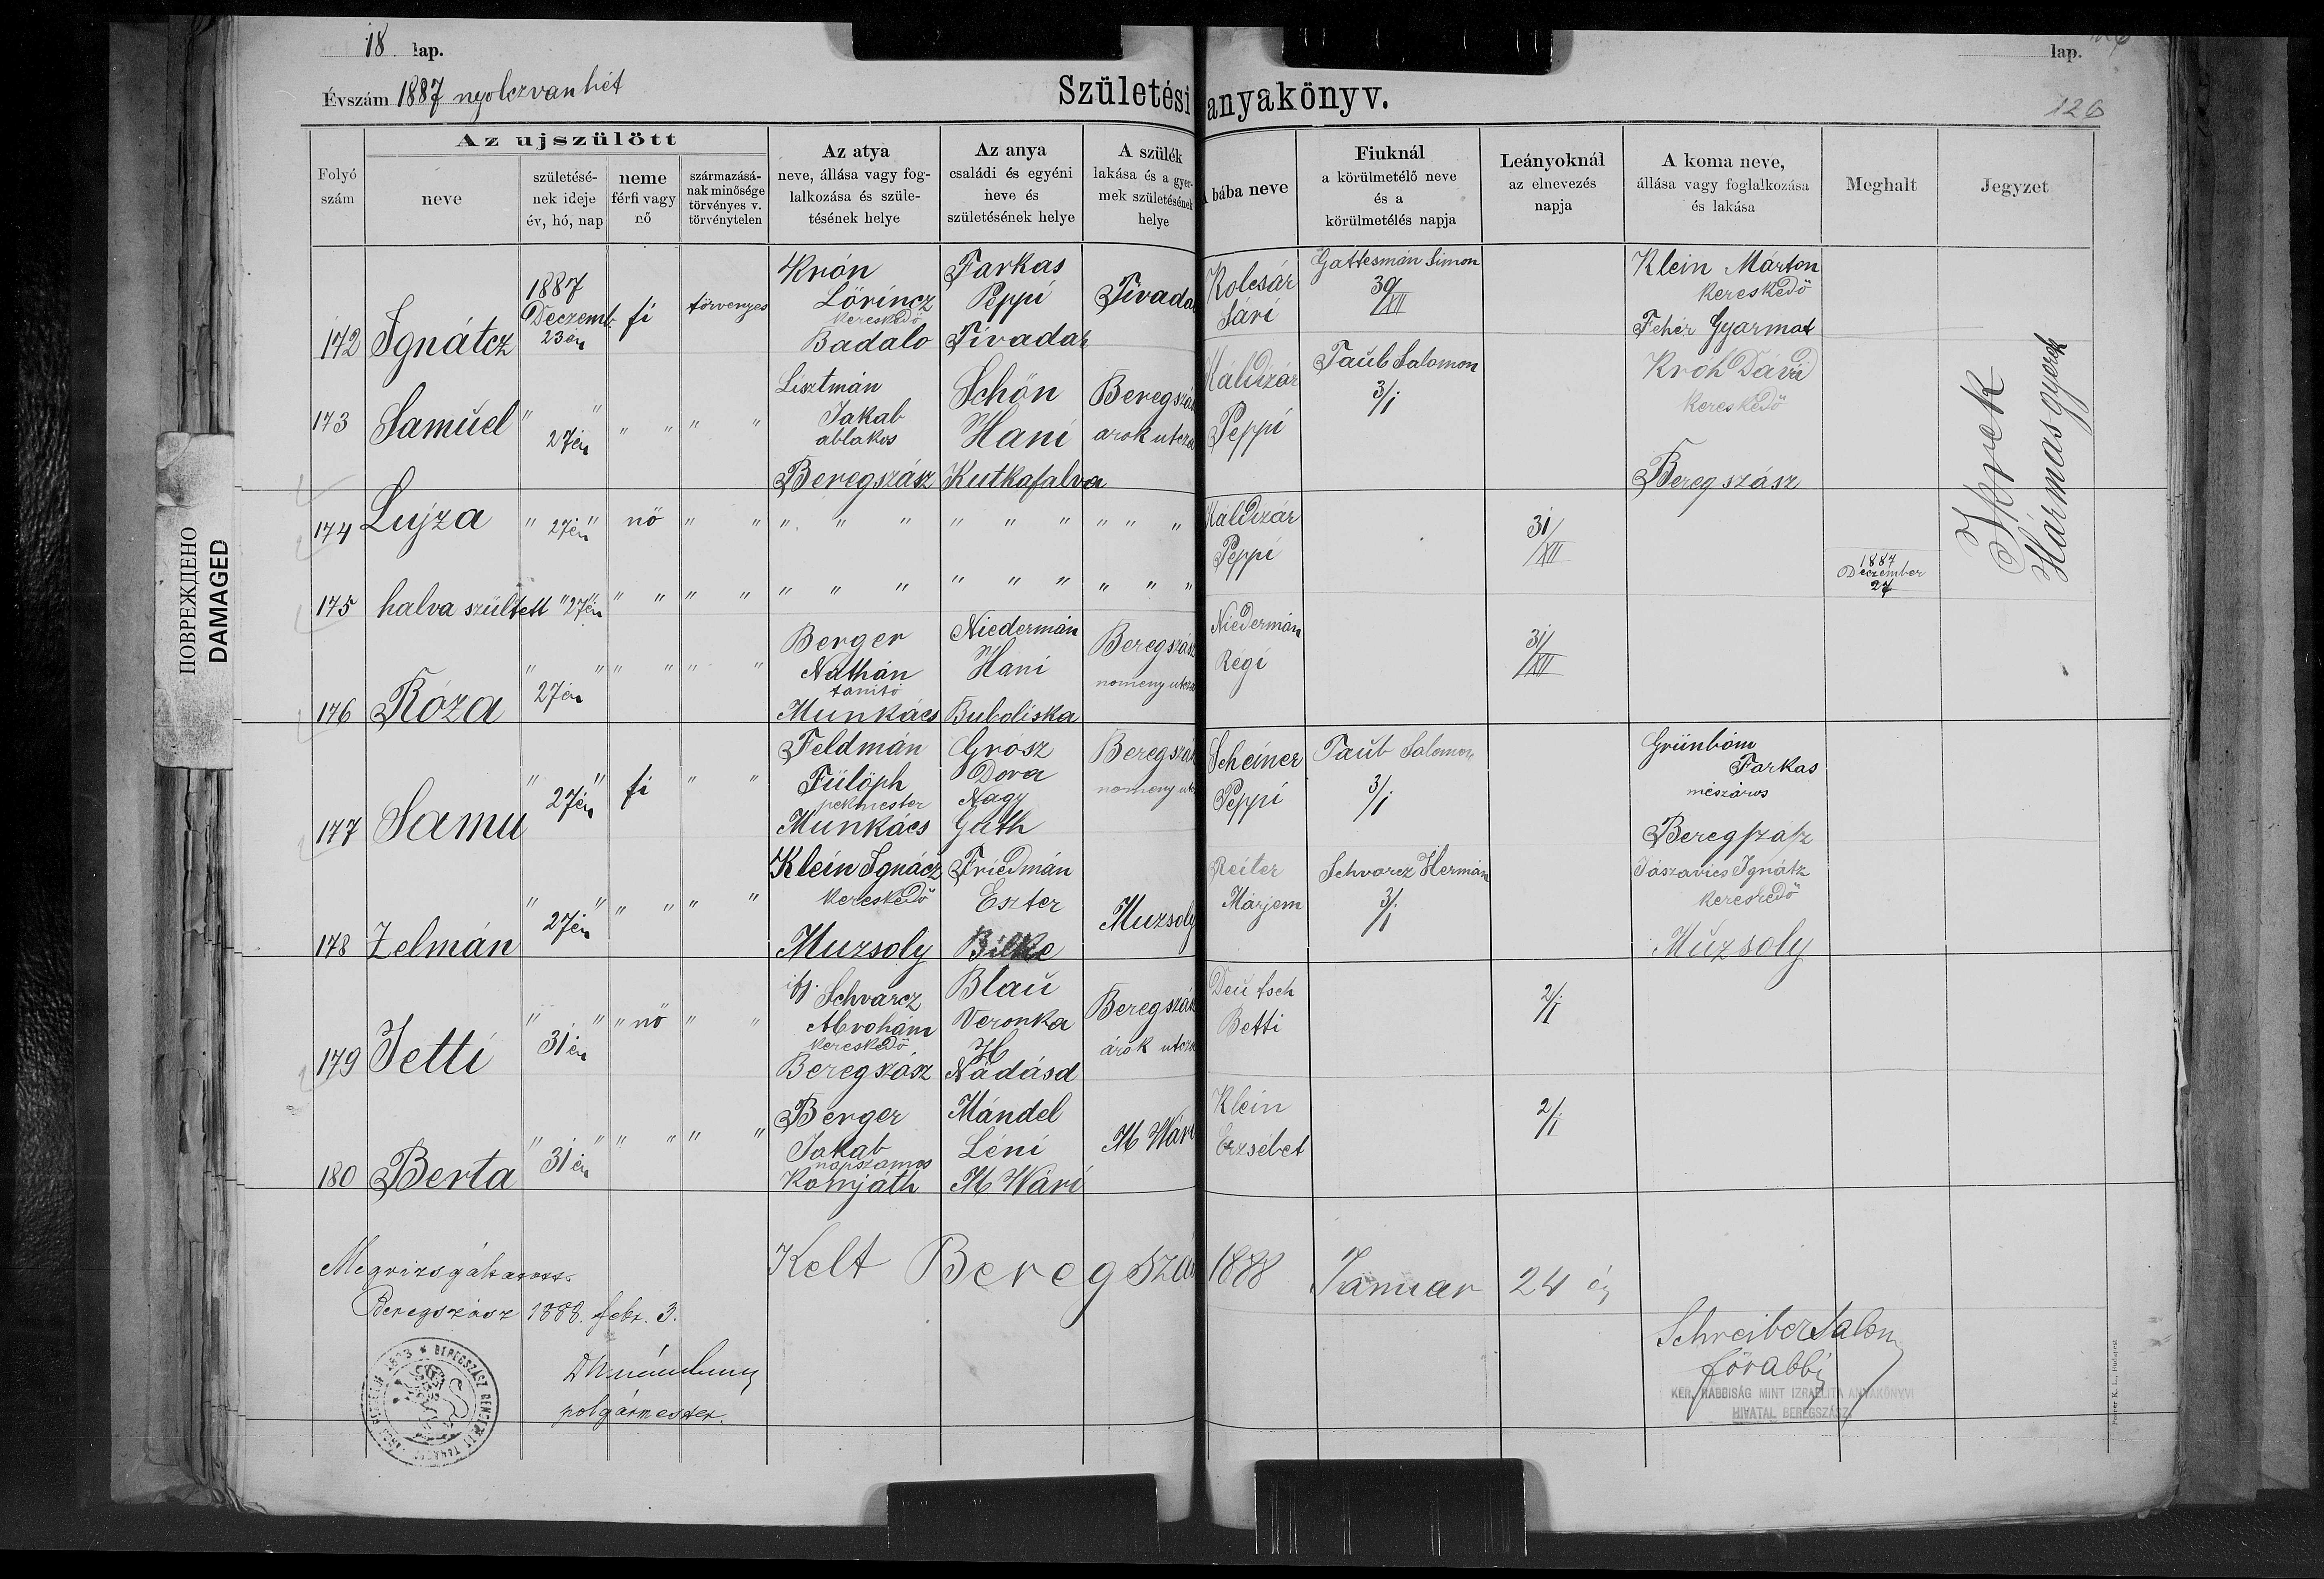 18 lap.
lap.
Évszám 1887 nyolczvanhét
Születési anyakönyv.
126
Folyó szám
Az ujszülött
neve
születésé-
nek ideje
év, hó, nap
neme
férfi vagy
nő
származásá-
nak minősége
törvényes v.
törvénytelen
Az atya
neve, állása vagy fog-
lalkozása és szüle-
tésének helye
Az anya
családi és egyéni
neve és
születésének helye
A szülék
lakása és a gyer-
mek születésének
helye
A bába neve
Fiuknál
a körülmetélő neve
és a
körülmetélés napja
Leányoknál
az elnevezés
napja
A koma neve,
állása vagy foglalkozása
és lakása
Meghalt
Jegyzet
172 Ignátcz 1887 Deczemb 23án fi törvenyes Krón Lörincz kereskedő Badalo Farkas Peppi Tivadar Tivadar Kolcsár Sári Gattesmán Simon 30/XII Klein Márton kereskedő Fehér Gyarmat
173 Samuel " 27én " " " " " Lisztmán Jakab ablakos Beregszász Schön Hani Kutkafalva Beregszász arok utcza Káldizár Peppi Taub Salomon 3/1 Króh Dávid kereskedő Beregszász
174 Lujza " 27én " nő " " " " " " " " " " " Káldizár Peppi 31/XII
175 halva szültett " 27én " " " " " " " " " " " " " " 1887 Deczember 27
Ikrek
Hármasgyerek
176 Róza " 27én " " " " " Berger Náthán tanitó Munkács Niedermán Hani Buboliska Beregszász nomeny utcza Niedermán Régi 31/XII
177 Samu " 27én " fi " " Feldmán Fülöph pekmester Munkács Grósz Dora Nagy Gúth Beregszász nomeny utcz Scheiner Peppi Taub Salomon 3/1 Grünbóm Farkas mészáros Beregszász
178 Zelmán " 27én " " " " " Klein Ignácz kereskedő Muzsoly Friedmán Eszter Bilke Muzsoly Reiter Márjem Schvarcz Hermán 3/1 Jászavics Ignátz kereskedő Muzsoly
179 Jetti " 31én " " nő " " ifj. Schvarcz Abrohám kereskedő Beregszász Blau Veronka H Nádásd Beregszász árok utcza Deutsch Betti 2/1
180 Berta " 31én " " " " " Berger Jakab napszámos Komjáth Mándel Léni M Wári M Wári Klein Erzsébet 2/1
Kelt Beregszász 1888 Januar 24 én
Beregszász 1888. febr. 3.
polgármester.
Schreiber Salon
főrabbi
KER. RABBISÁG MINT IZRAELITA ANYAKÖNYVI
HIVATAL BEREGSZÁSZ.
ПОВРЕЖДЕНО
DAMAGED